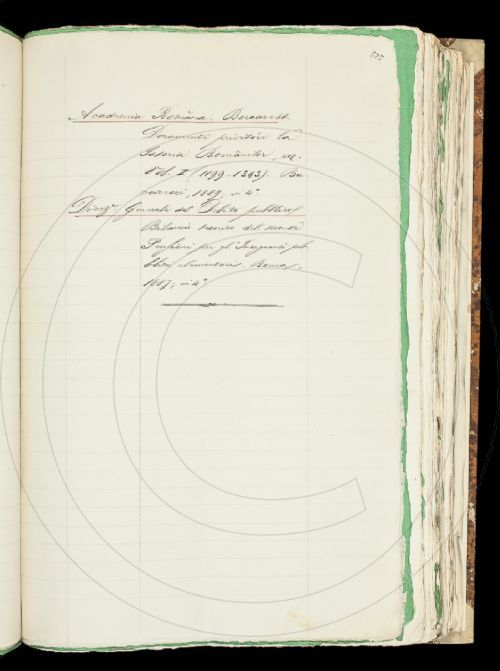 515
Academia Română. Bucarest.
Documente privitóre la
Istoria Românilor,
Vol. I (1199-1345). Bu-
curesci, 1887, in 4°.
Direz.e Generale del Debito pubblico
Bilancio tecnico del
Pensioni per gl'Insegnanti pub-
blici elementari. Roma,
1887, in 4°.